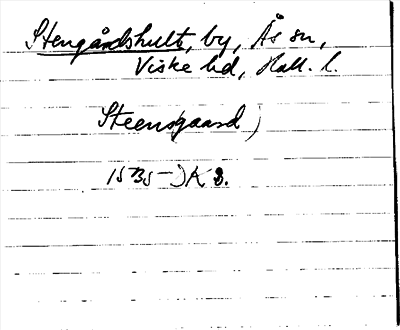 Stengårdshult, by, Ås sn,
Viske hd, Hall. l.
Steensgaard)
1535 JK 3.